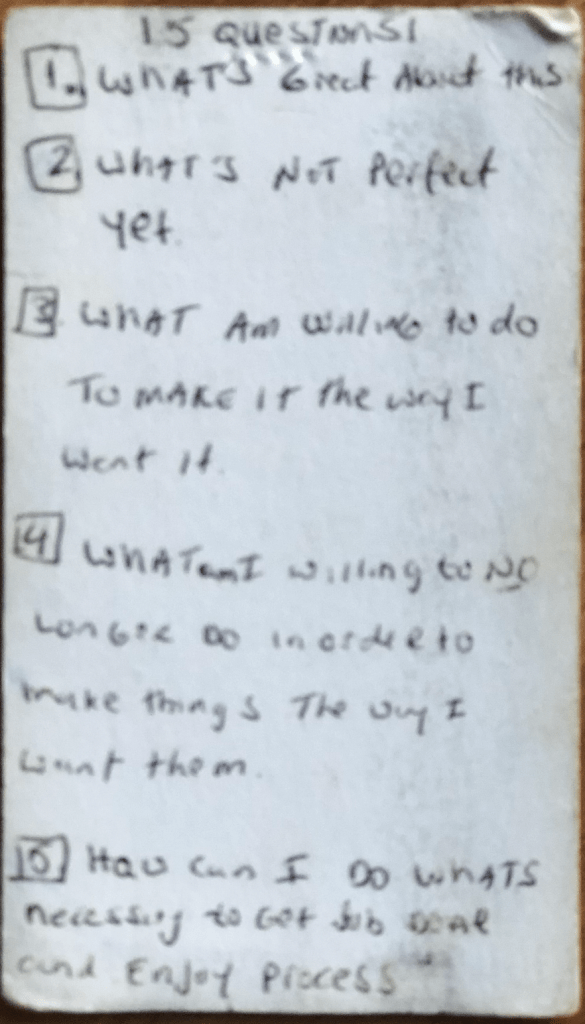 15 QuesTions!
1. WHATS Great About this
2 What's NoT Perfect
yet.
3 WHAT Am Willing to do
To MAKE IT The way I
Want It.
4 WHAT am I willing to NO
Longer DO in order to
make things The way I
want them.
5 How Can I DO WHATS
necessary to Get Job Done
and Enjoy Process